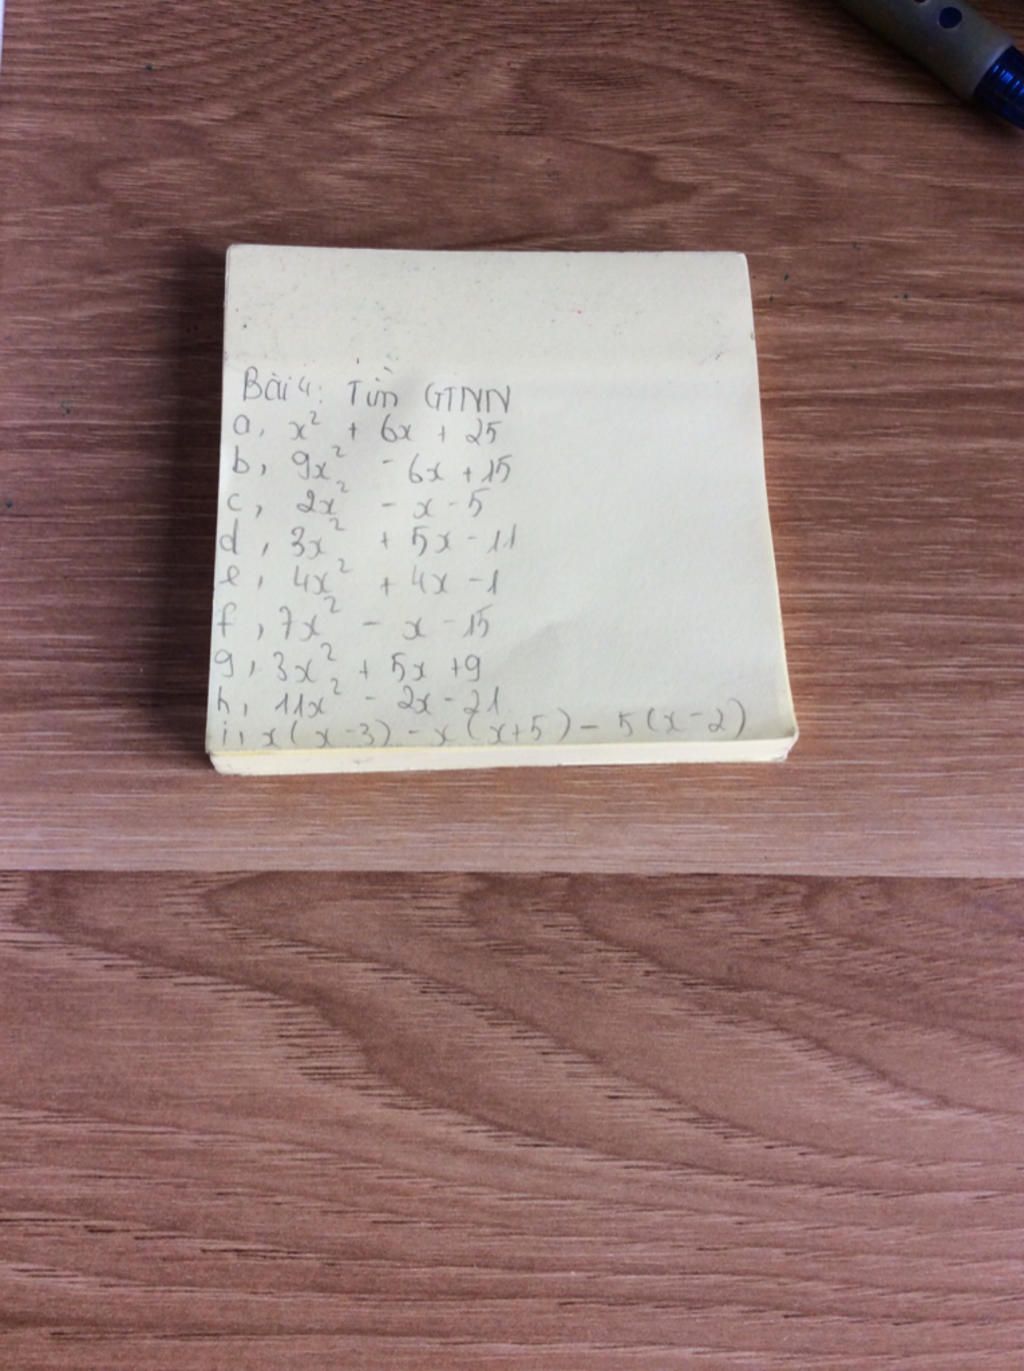 Bài 4: Tìm GTNN
a, x² + 6x + 25
b, 9x² - 6x + 15
c, 2x² - x - 5
d, 3x² + 5x - 11
e, 4x² + 4x - 1
f, 7x² - x - 15
g, 3x² + 5x + 9
h, 11x² - 2x - 21
i, x(x-3) - x(x+5) - 5(x-2)